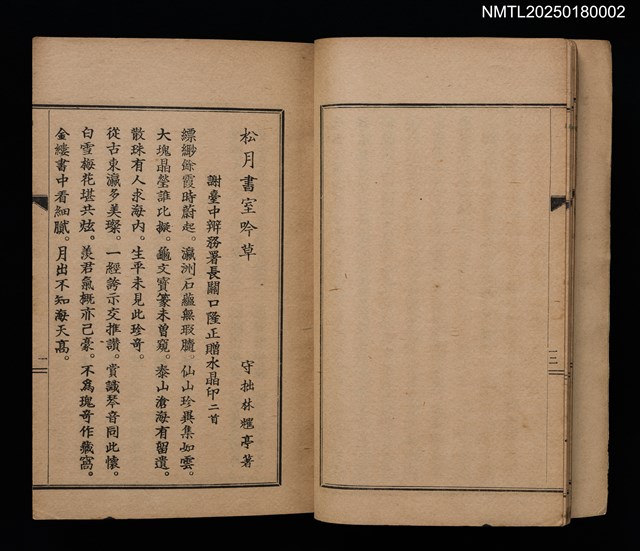 NMTL20250180002
松月書室吟草
守拙林耀亭著
謝臺中辦務署長關口隆正贈水晶印二首
縹緲餘霞時蔚起。瀛洲石蘊無瑕膩。仙山珍異集如雲。
大塊晶瑩誰比擬。龜文寶篆未曾窺。泰山滄海有留遺。
散珠有人求海內。生平未見此珍奇。
從古東瀛多美璨。一經誇示交推讚。賞識琴音同此懷。
白雪梅花堪共炫。羨君氣概亦己豪。不為瑰奇作藏窩。
金縷書中看細膩。月出不知海天高。
一
二